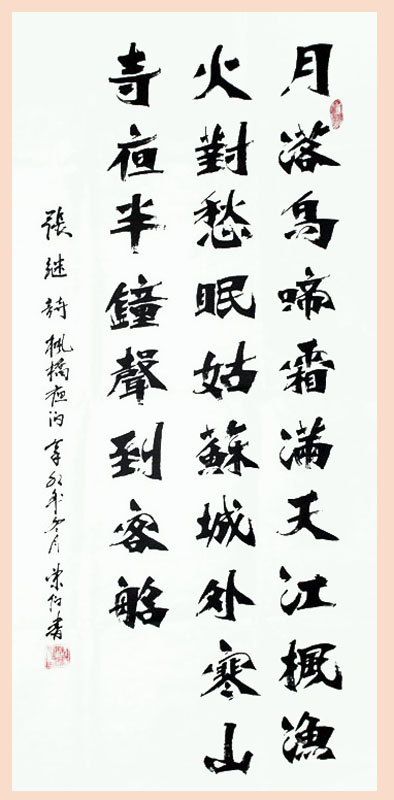 月落烏啼霜滿天江楓漁
火對愁眠姑蘇城外寒山
寺夜半鐘聲到客船
張继詩楓橋夜泊辛卯年冬月荣書